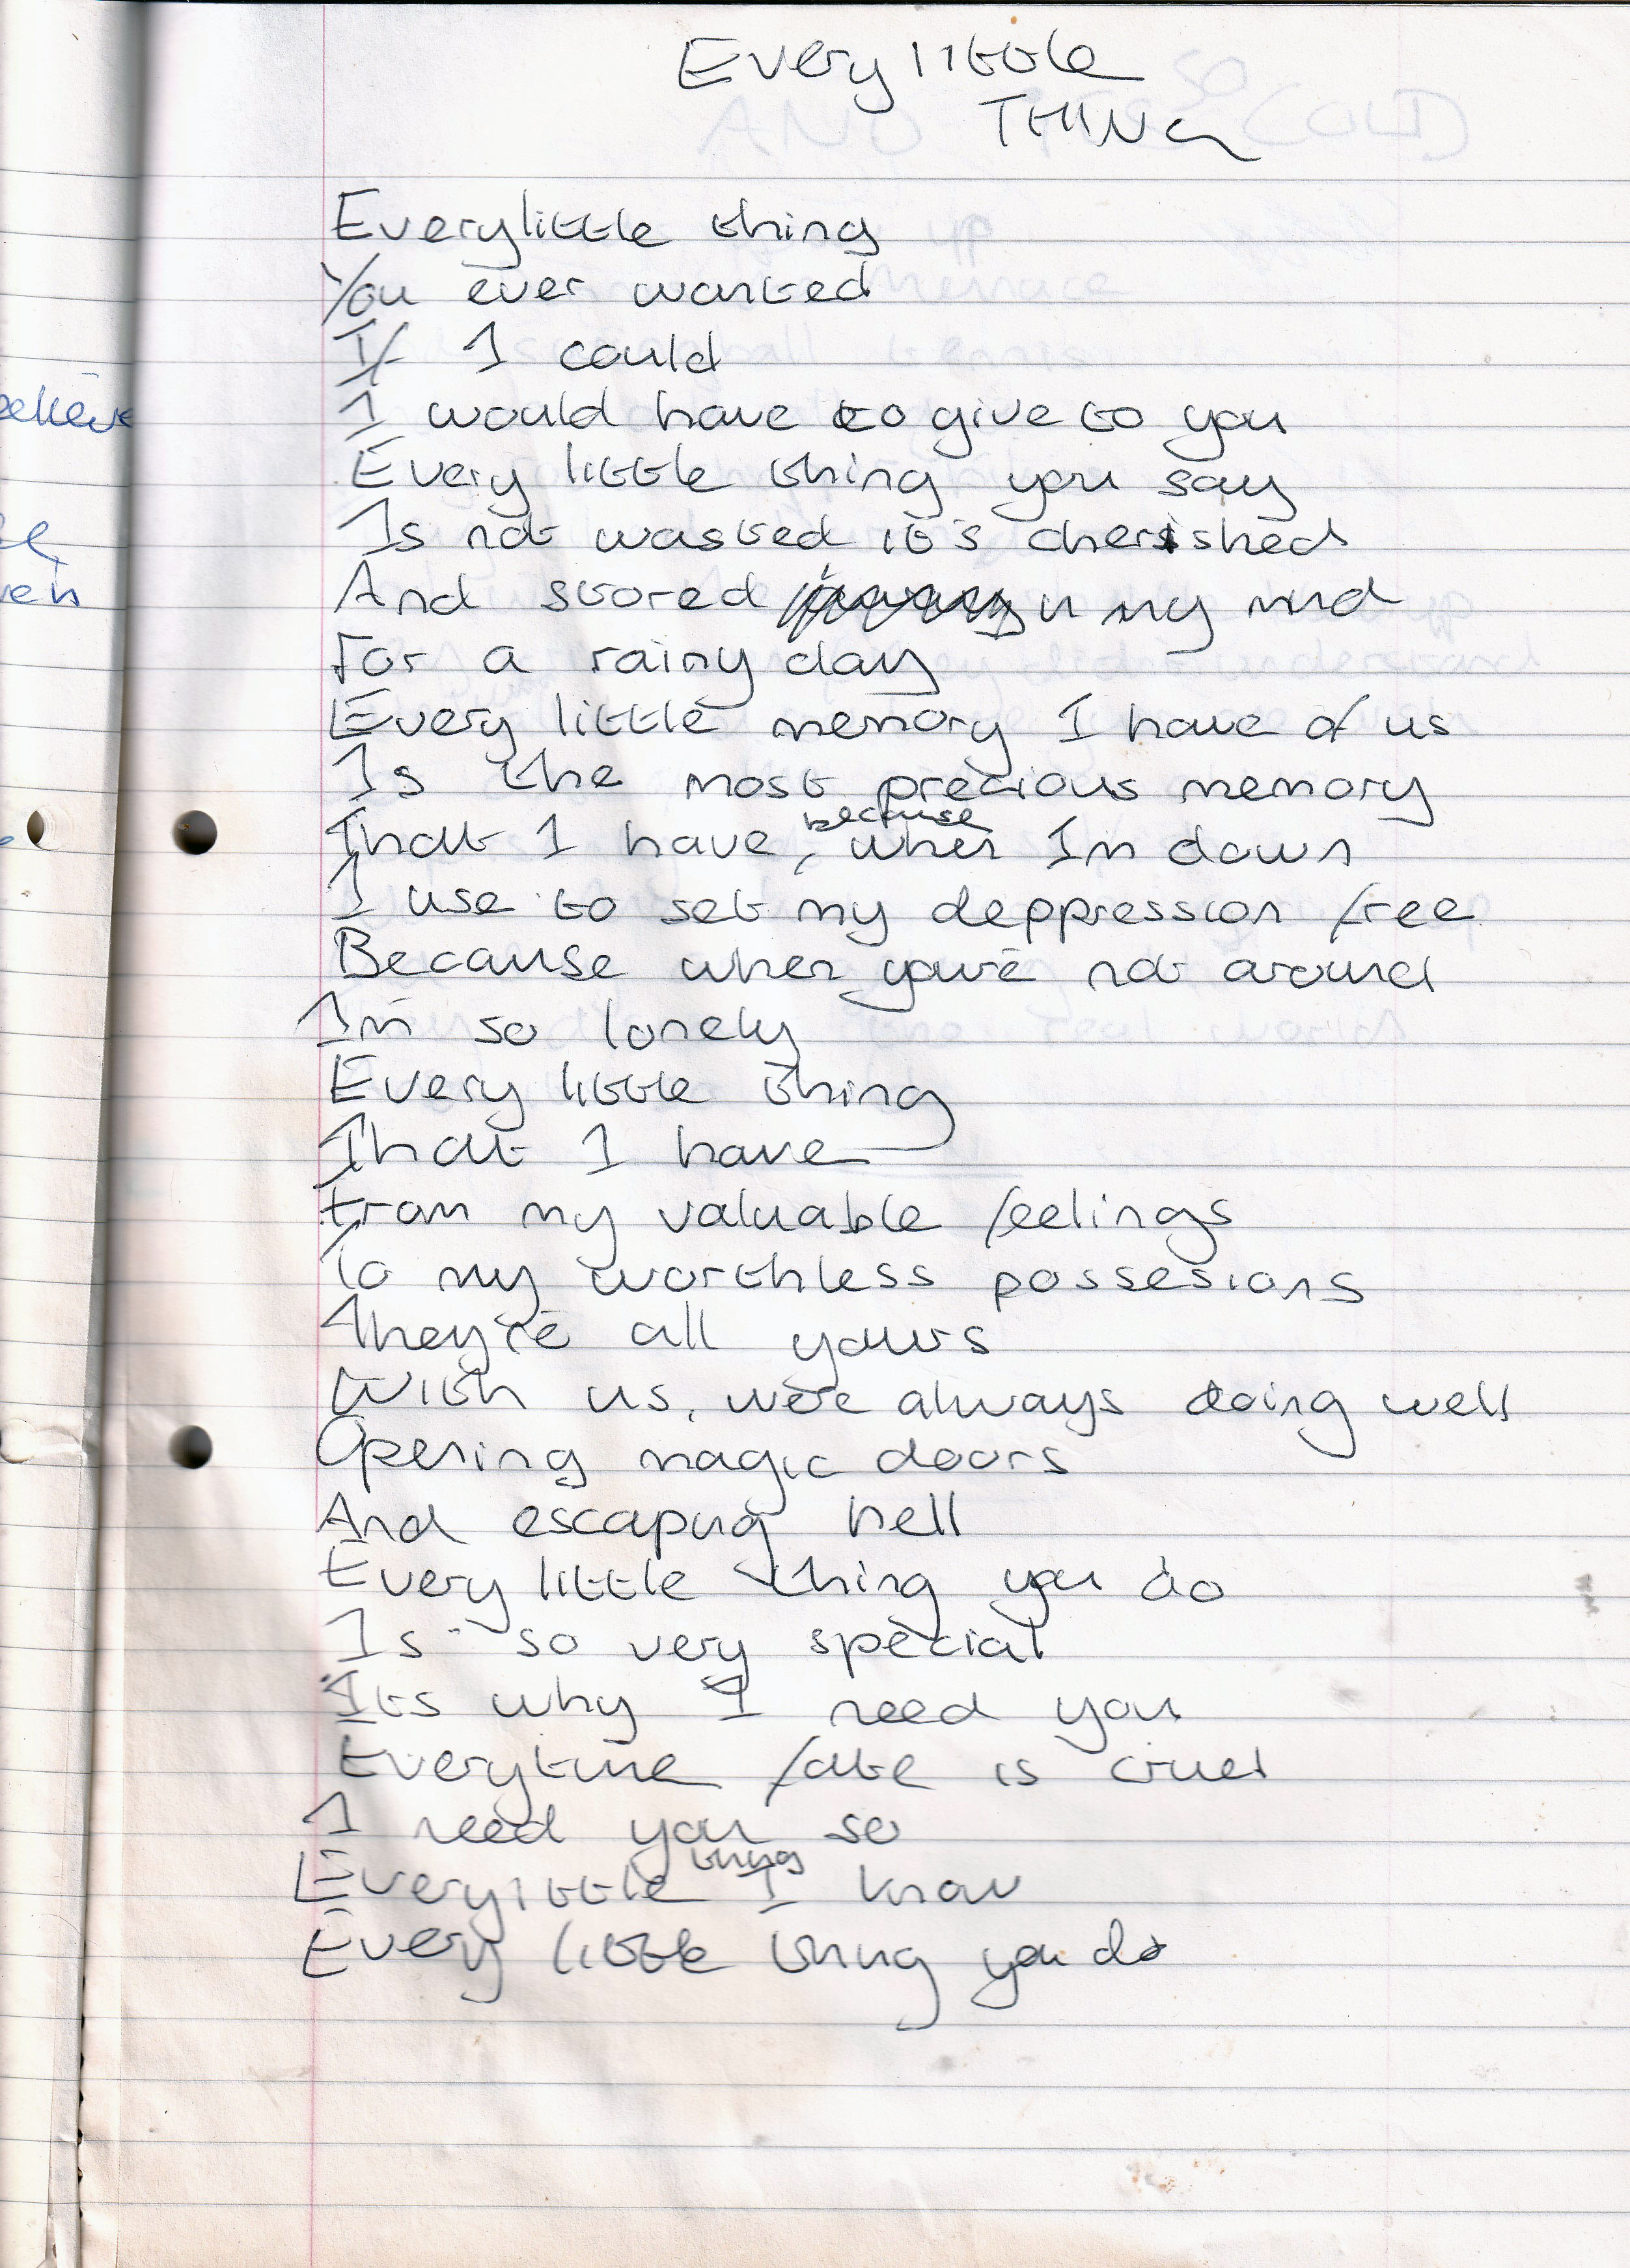 Every little
THING
Every little thing
You ever wanted
If I could
I would have to give to you
Every little thing you say
Is not wasted it's cherished
And stored in my mind
For a rainy day
Every little memory I have of us
Is the most precious memory
because
That I have, when I'm down
I use to set my deppression free
Because when you're not around
I'm so lonely
Every little thing
That I have
From my valuable feelings
To my worthless possesions
They're all yours
With us, we're always doing well
Opening magic doors
And escaping hell
Every little thing you do
Is so very special
Its why I need you
Everytime fate is cruel
I need you so
thing
Every little I know
Every little thing you do